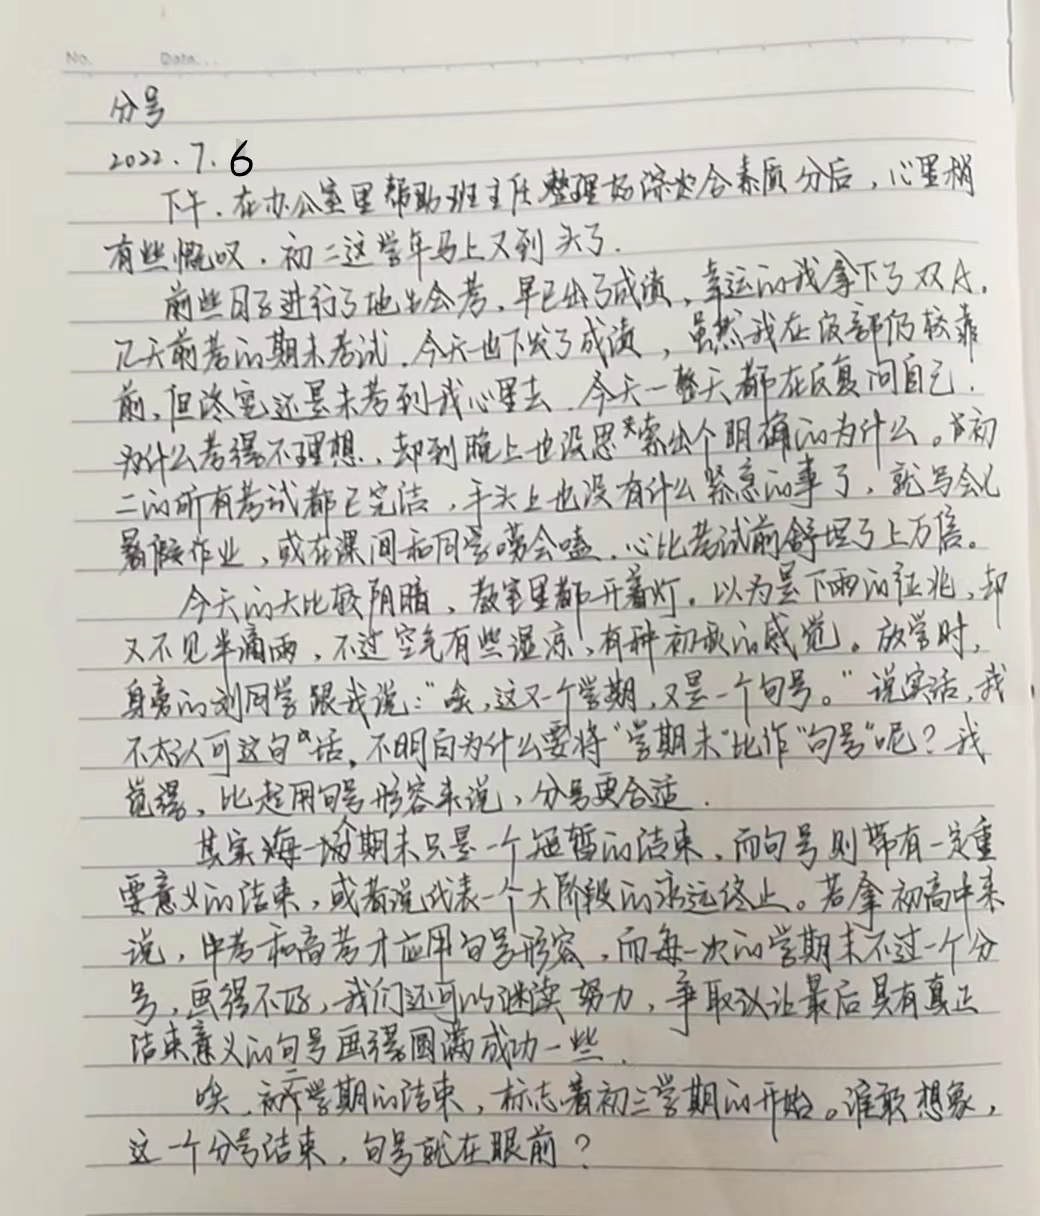 No.  Date...
分号
2022.7.6
下午，在办公室里帮助班主任整理好综合素质分后，心里稍
有些慨叹，初二这学年马上又到头了.
前些日子进行了地生会考，早已出了成绩，幸运的我拿下了双A.
几天前考的期末考试，今天也下发了成绩，虽然我在级部仍较靠
前，但终究还是未考到我心里去，今天一整天都在反复问自己.
为什么考得不理想，却到晚上也没思索出个明确的为什么。初
二的所有考试都已完结，手头上也没有什么紧急的事了，就写会儿
暑假作业，或在课间和同学唠会嗑，心比考试前舒坦了上万倍。
今天的天比较阴暗，教室里都开着灯，以为是下雨的征兆，却
又不见半滴雨，不过空气有些湿凉，有种初秋的感觉。放学时，
身旁的刘同学跟我说：“唉，这又一个学期，又是一个句号。”说实话，我
不太认可这句话，不明白为什么要将“学期末”比作“句号”呢？我
觉得，比起用句号形容来说，分号更合适.
其实每一个期末只是一个短暂的结束，而句号则带有一定重
要意义的结束，或者说代表一个大阶段的永远终止。若拿初高中来
说，中考和高考才应用句号形容，而每一次的学期末不过一个分
号，画得不好，我们还可以继续努力，争取让最后具有真正
结束意义的句号画得圆满成功一些.
唉，初二学期的结束，标志着初三学期的开始。谁敢想象，
这一个分号结束，句号就在眼前？